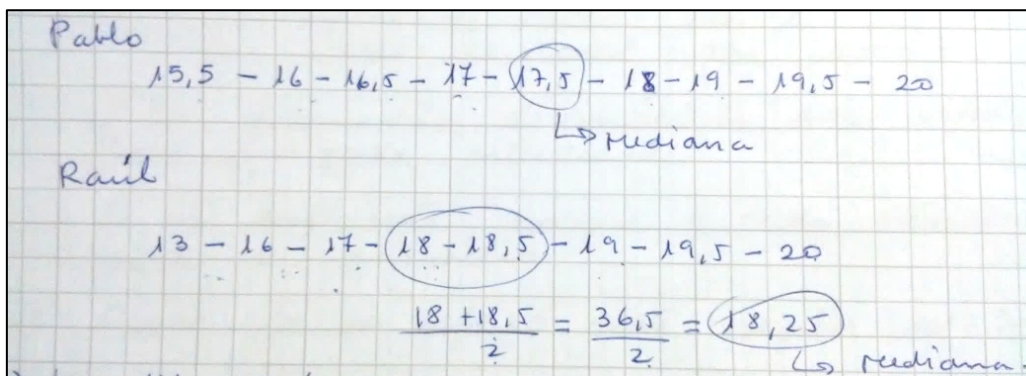 Pablo
15,5 - 16 - 16,5 - 17 - 17,5 - 18 - 19 - 19,5 - 20
mediana
Raúl
13 - 16 - 17 - 18 - 18,5 - 19 - 19,5 - 20
18 + 18,5 / 2 = 36,5 / 2 = 18,25
mediana